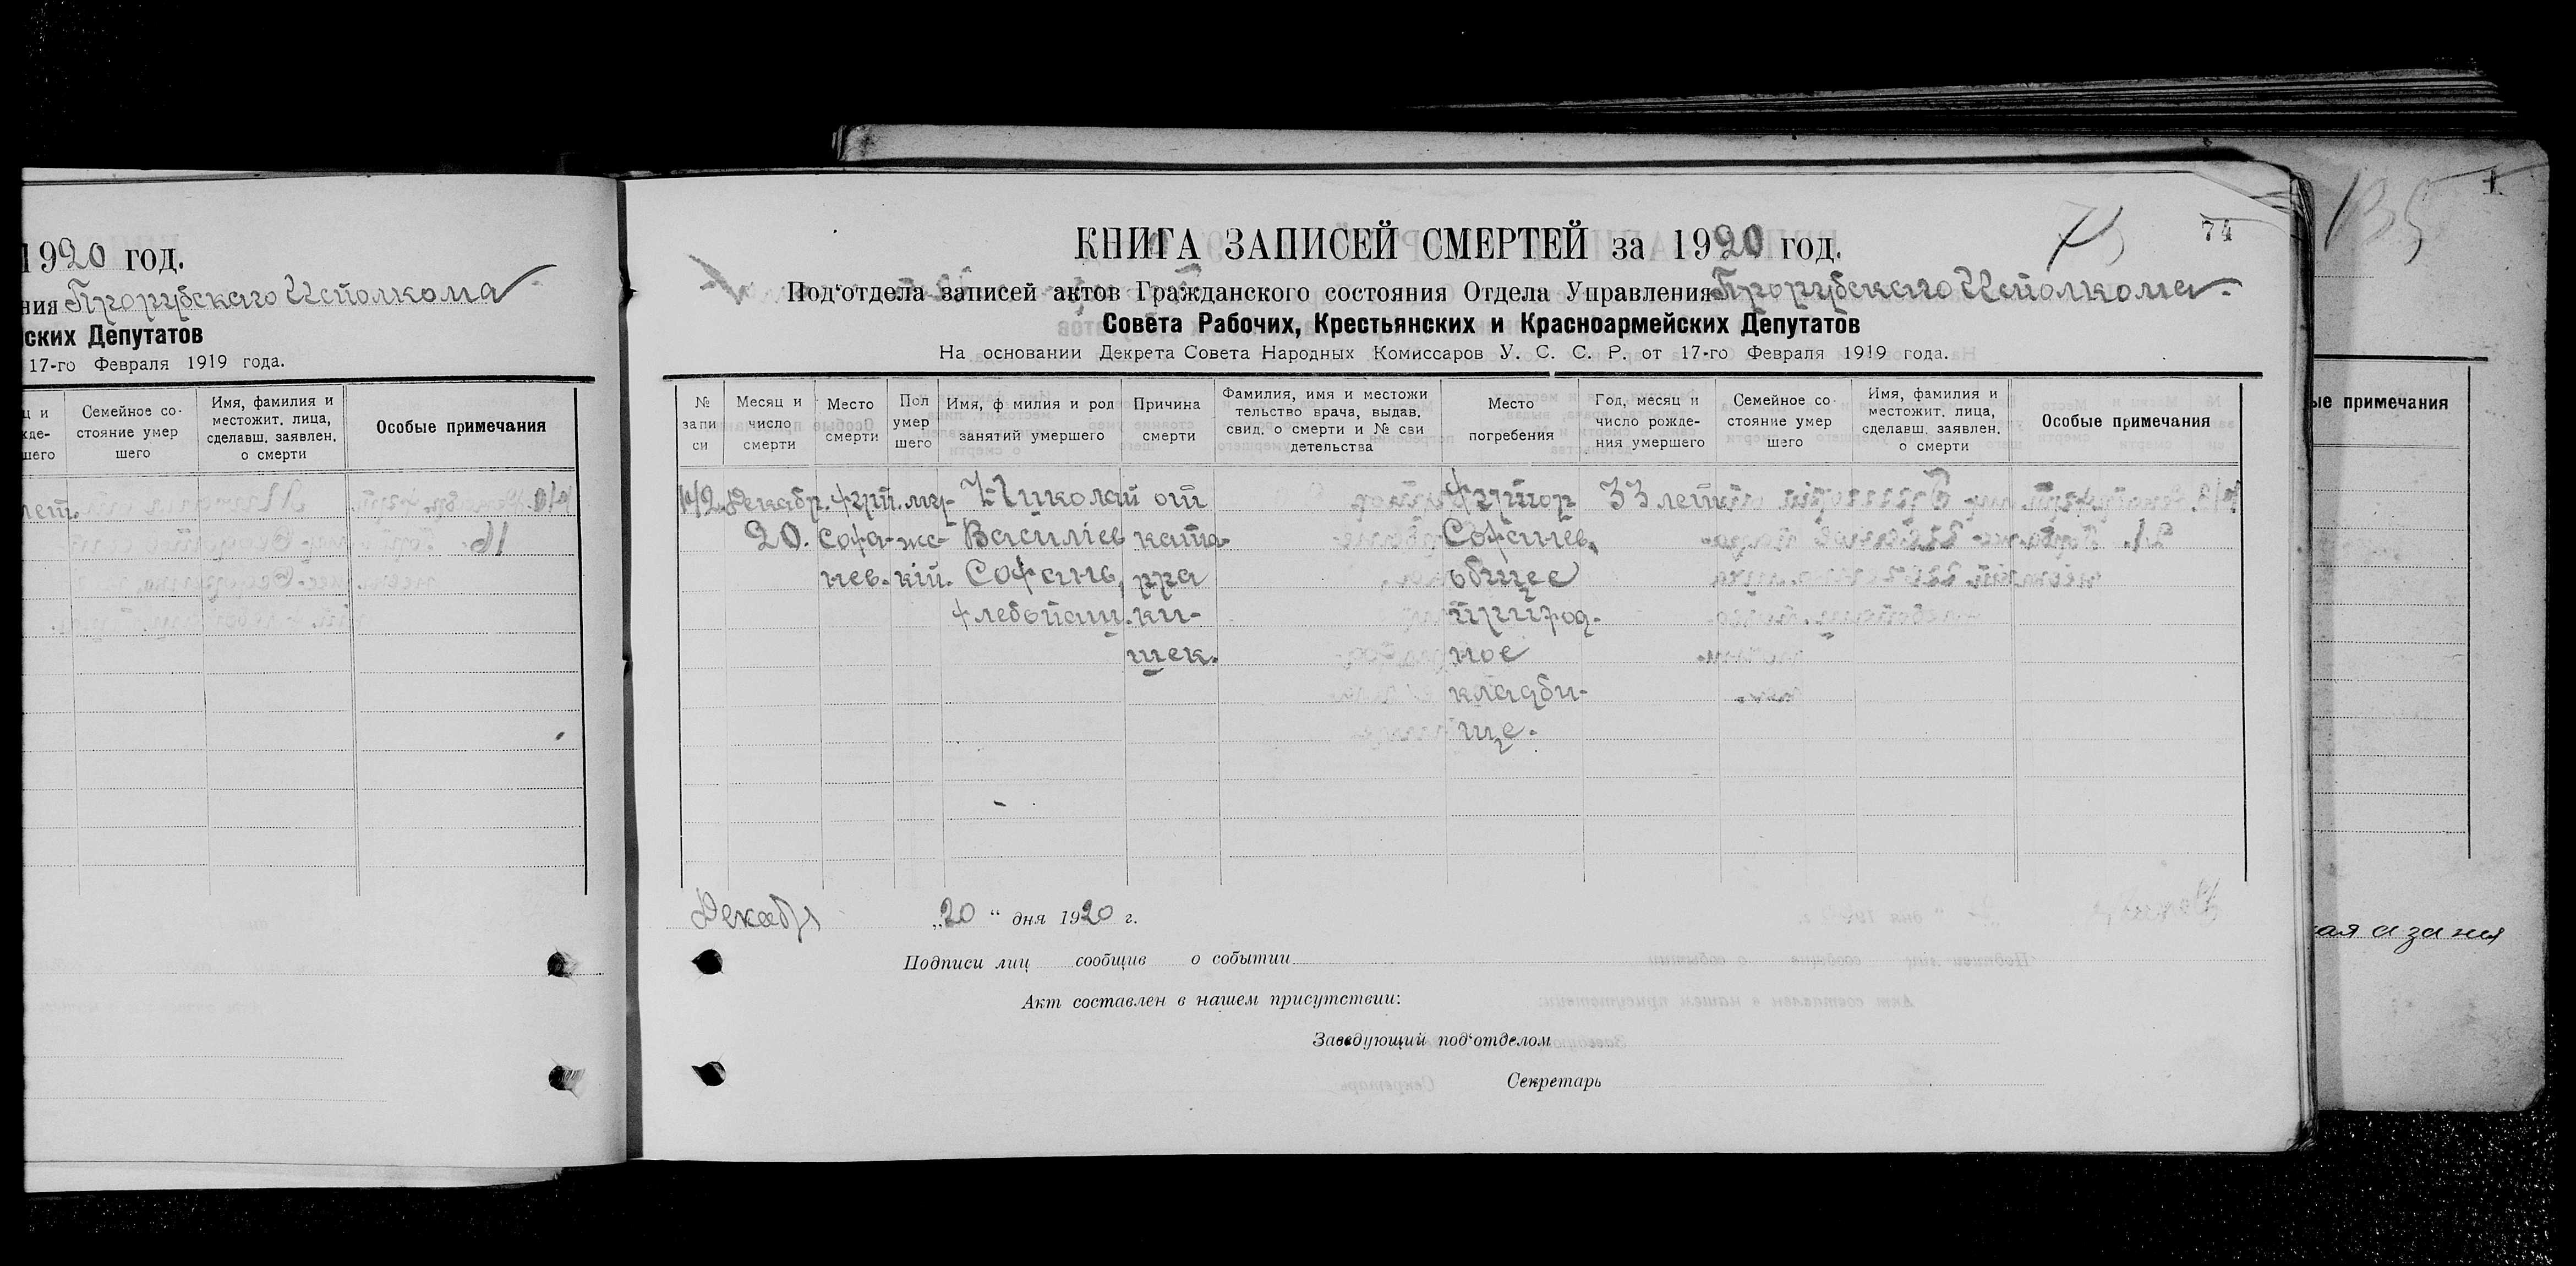 1920 год.
ния Прорубскаго Исполкома
ских Депутатов
17-го Февраля 1919 года.
Семейное со-
стояние умер
шего
Имя, фамилия и
местожит. лица,
сделавш. заявлен.
о смерти
Особые примечания
лет.
74
КНИГА ЗАПИСЕЙ СМЕРТЕЙ за 1920 год.
Под'отдела записей актов Гражданского состояния Отдела Управления Прорубскаго Исполкома
Совета Рабочих, Крестьянских и Красноармейских Депутатов
На основании Декрета Совета Народных Комиссаров У. С. С. Р. от 17-го Февраля 1919 года.
№
запи
си
Месяц и
число
смерти
Место
смерти
Пол
умер
шего
Имя, ф милия и род
занятий умершего
Причина
смерти
Фамилия, имя и местожи
тельство врача, выдав.
свид. о смерти и № сви
детельства
Место
погребения
Год, месяц и
число рожде-
ния умершего
Семейное со-
стояние умер
шего
Имя, фамилия и
местожит. лица,
сделавш. заявлен.
о смерти
Особые примечания
Декабр. хут. му- Николай от хутор 33 лет
20. Софа- же- Василіев ката- Софанев,
нев. кій. Софанв, рра общее
хлебопаш. ки- природ-
шек. ное
кладби-
ще.
Декабря „20 “ дня 1920 г.
Подписи лиц сообщив о событии
Акт составлен в нашем присутствии:
Заведующий под'отделом
Секретарь
135
ые примечания